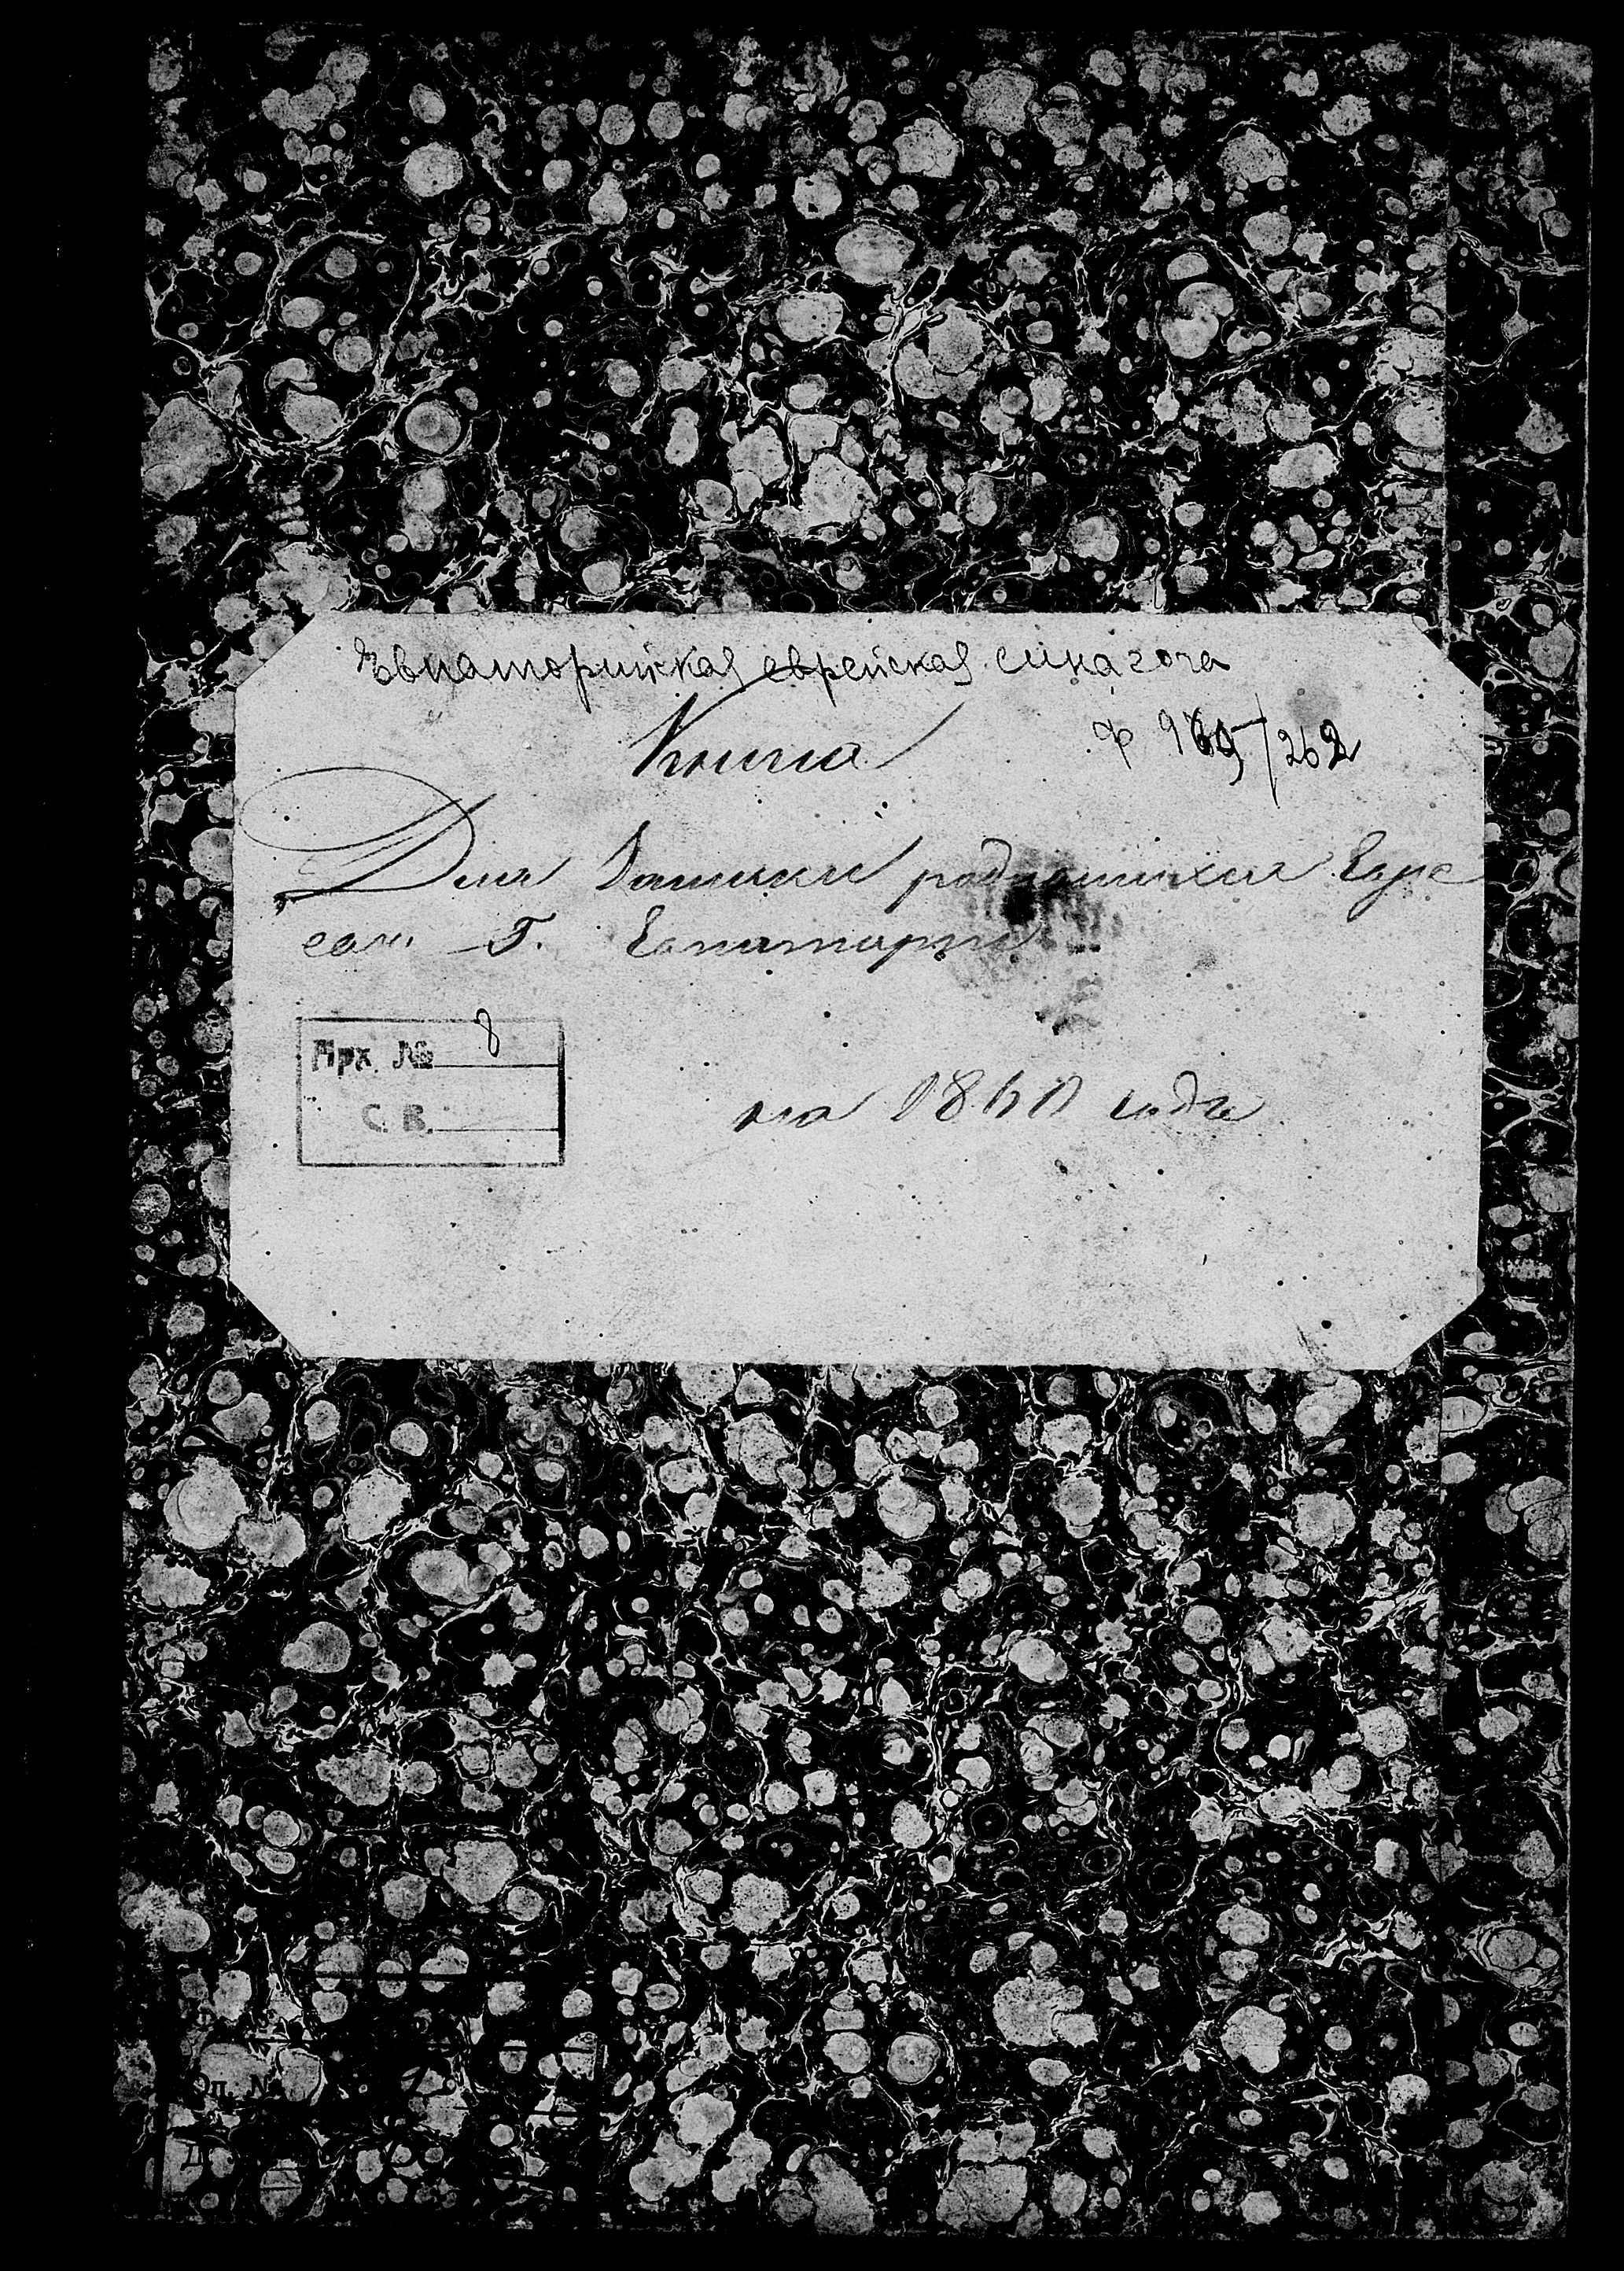 Евпаторийская еврейская синагога
Книга
Ф 965/262
Для Записки родившихся Евре
еам. Г. Евпатории
Арх. № 8
С. В.
на 1860 года
Оп. №